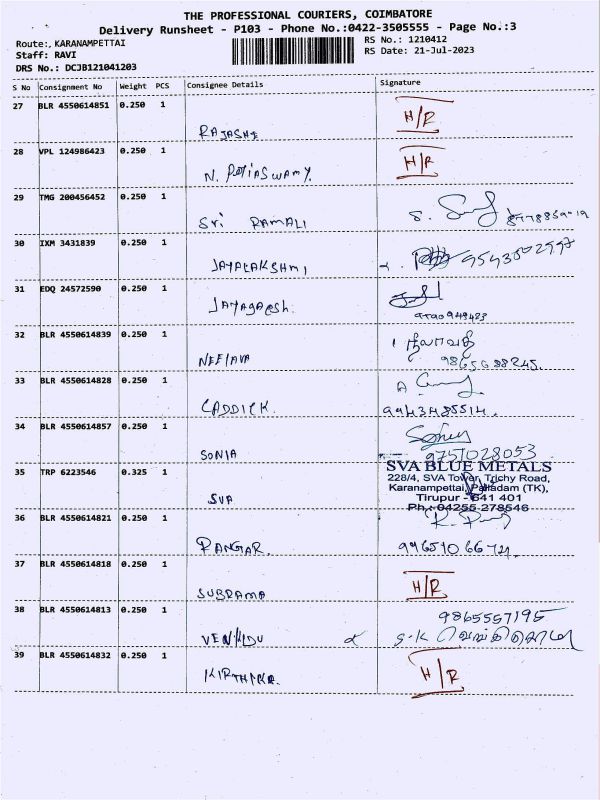 THE PROFESSIONAL COURIERS, COIMBATORE
Delivery Runsheet - P103 - Phone No.:0422-3505555 - Page No.:3
Route:, KARANAMPETTAI
RS No.: 1210412
Staff: RAVI
RS Date: 21-Jul-2023
DRS No.: DCJB121041203
S No Consignment No Weight PCS Consignee Details Signature
27 BLR 4550614851 0.250 1
H/R
RAJASHE
28 VPL 124986423 0.250 1
H/R
N.
29 TMG 200456452 0.250 1
Sri RAMALI
30 IXM 3431839 0.250 1
JAYALAKSHMI
31 EDQ 24572590 0.250 1
JAYAGAESH.
32 BLR 4550614839 0.250 1
NEELAVA
33 BLR 4550614828 0.250 1
CADDICK.
9943485514.
34 BLR 4550614857 0.250 1
SONIA
9751028053
35 TRP 6223546 0.325 1
SVA
SVA BLUE METALS
228/4, SVA Tower, Trichy Road,
Karanampettai, Palladam (TK),
Tirupur - 641 401
Ph.: 04255 278546
36 BLR 4550614821 0.250 1
RANGAR.
37 BLR 4550614818 0.250 1
H/R
SUBRAMA
38 BLR 4550614813 0.250 1
9865557195
VENKIDU
39 BLR 4550614832 0.250 1
H/R
KIRTHIKA.